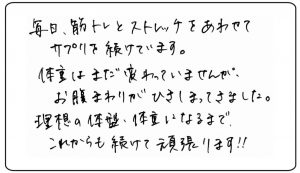 毎日、筋トレとストレッチをあわせて
サプリを続けています。
体重はまだ変わっていませんが、
お腹まわりがひきしまってきました。
理想の体型、体重になるまで、
これからも続けて頑張ります!!